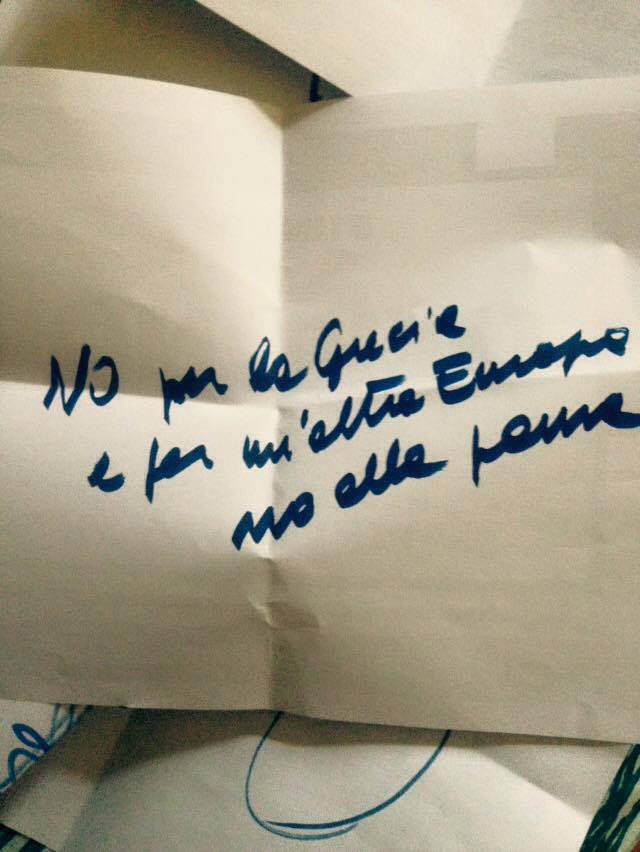 NO per la Grecia
e per un'altra Europa
no alla paura